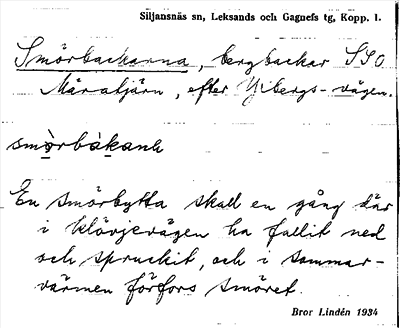 Siljansnäs sn, Leksands och Gagnefs tg, Kopp. l.
Smörbackarna, bergbackar SSO
Märatjärn, efter Ytbergs-vägen.
smörbàkanh
En smörbytta skall en gång där
i klövjevägen ha fallit ned
och spruckit, och i sommar-
värmen förfors smöret.
Bror Lindén 1934